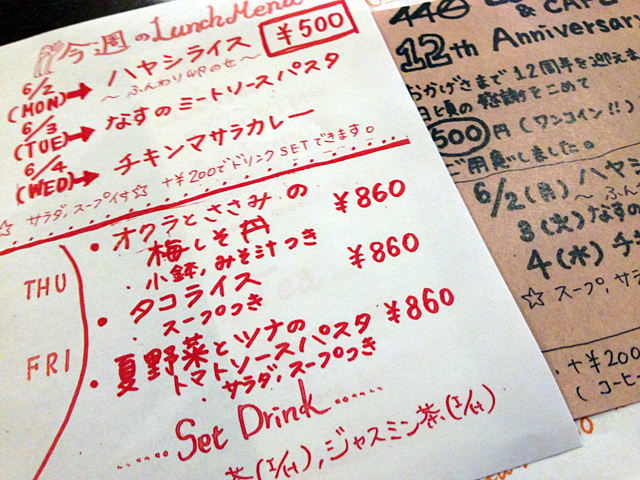 今週のLunch Menu
¥500
6/2
(MON)→ハヤシライス
〜ふんわり卵のせ〜
6/3
(TUE)→なすのミートソースパスタ
6/4
(WED)→チキンマサラカレー
☆サラダ,スープ付☆ +¥200でドリンクSETできます。
THU
FRI
・オクラとささみの
梅しそ丼 ¥860
・小鉢,みそ汁つき
・タコライス ¥860
・スープつき
・夏野菜とツナの
トマトソースパスタ ¥860
・サラダ,スープつき
......Set Drink......
茶(I/H),ジャスミン茶(I/H)
& CAFE
12th Anniversary
おかげさまで12周年を迎えま
日と頃の感謝をこめて
500円(ワンコイン!!)
ご用意しました。
6/2(月)ハヤシ
〜ふん
3(火)なすの
4(水)チ
☆スープ,サラ
+¥200
(コーヒー